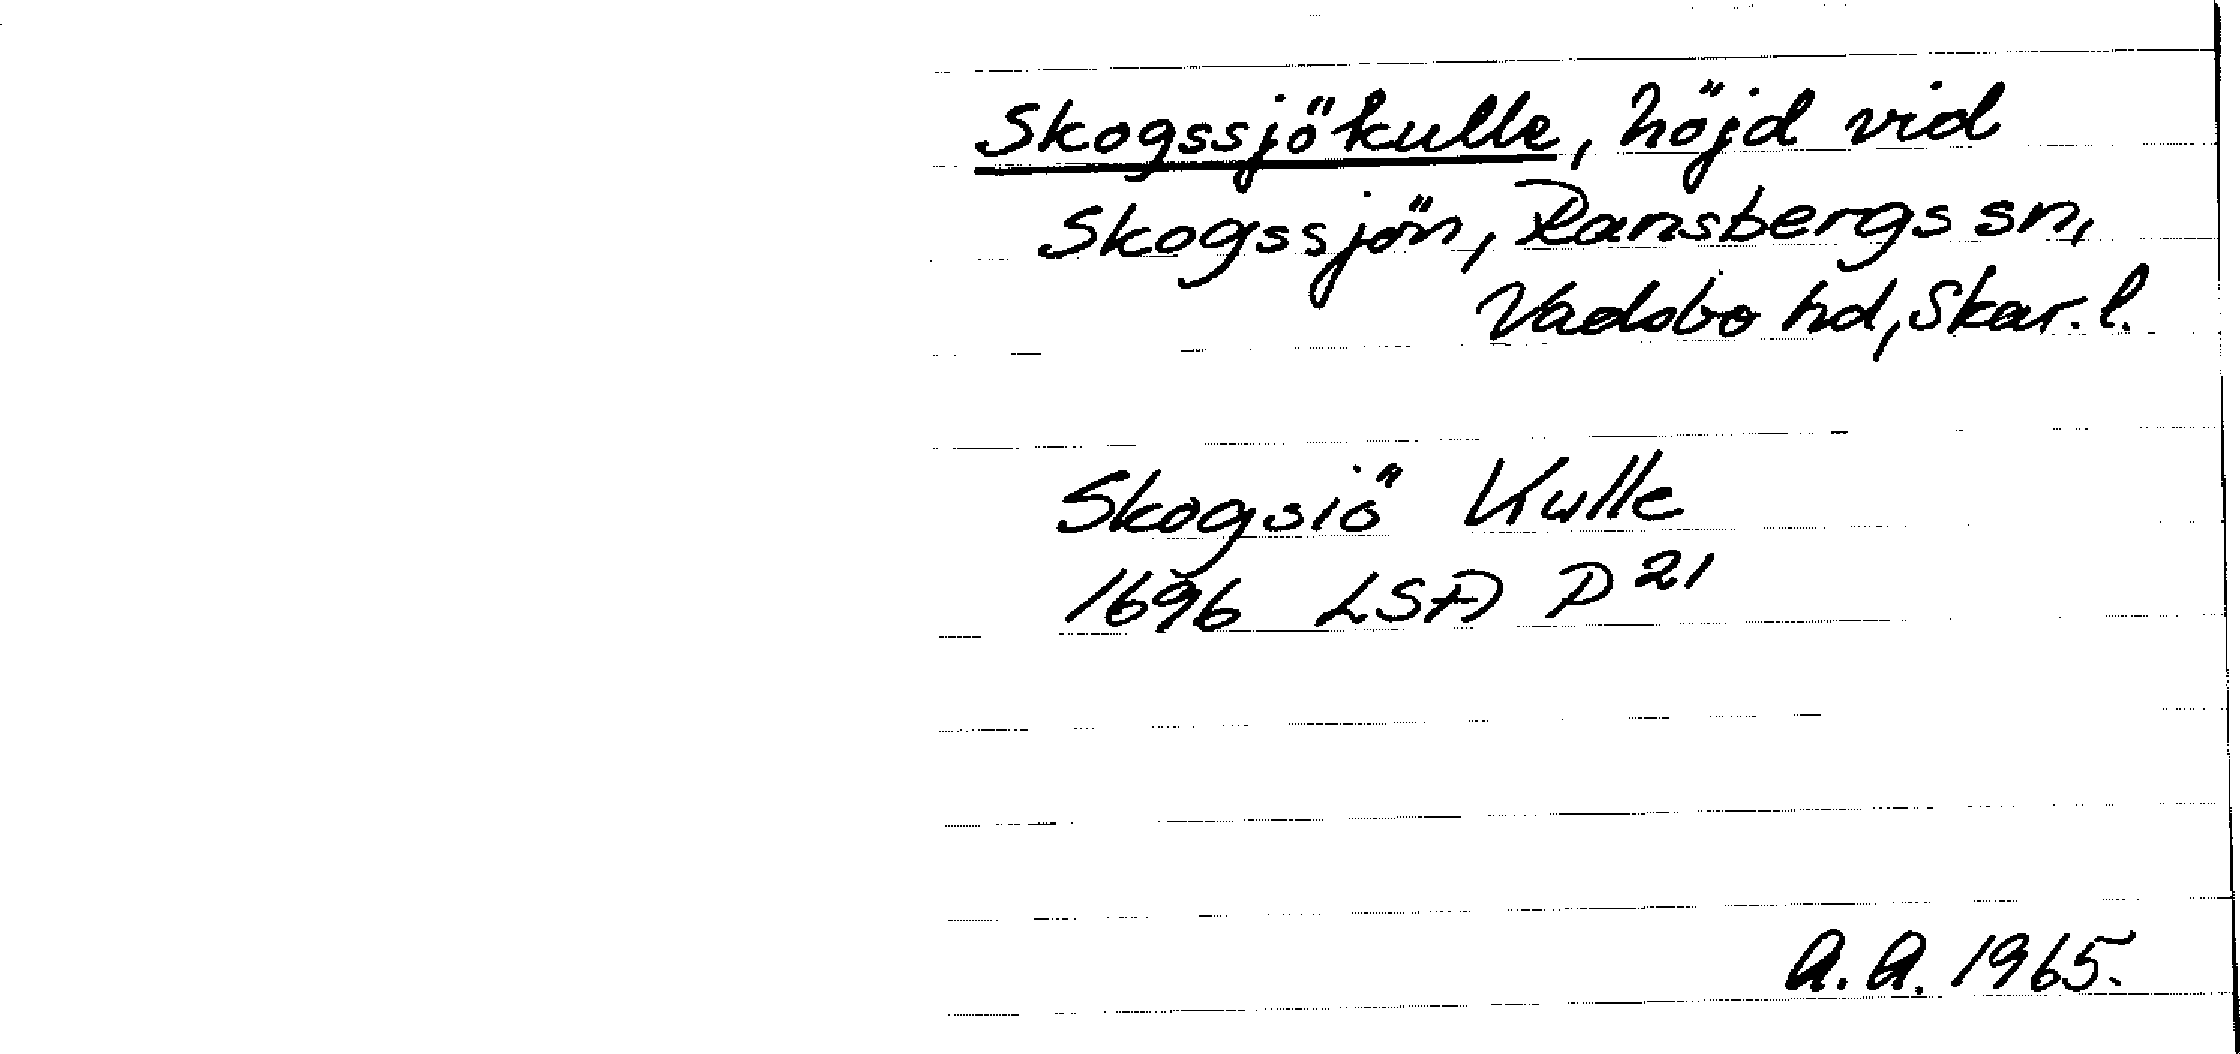 Skogssjökulle, höjd vid
Skogssjön, Ransbergs sn,
Vadsbo hd, Skar. l.
Skogsiö Kulle
1696 LSA P 21
A. A. 1965.